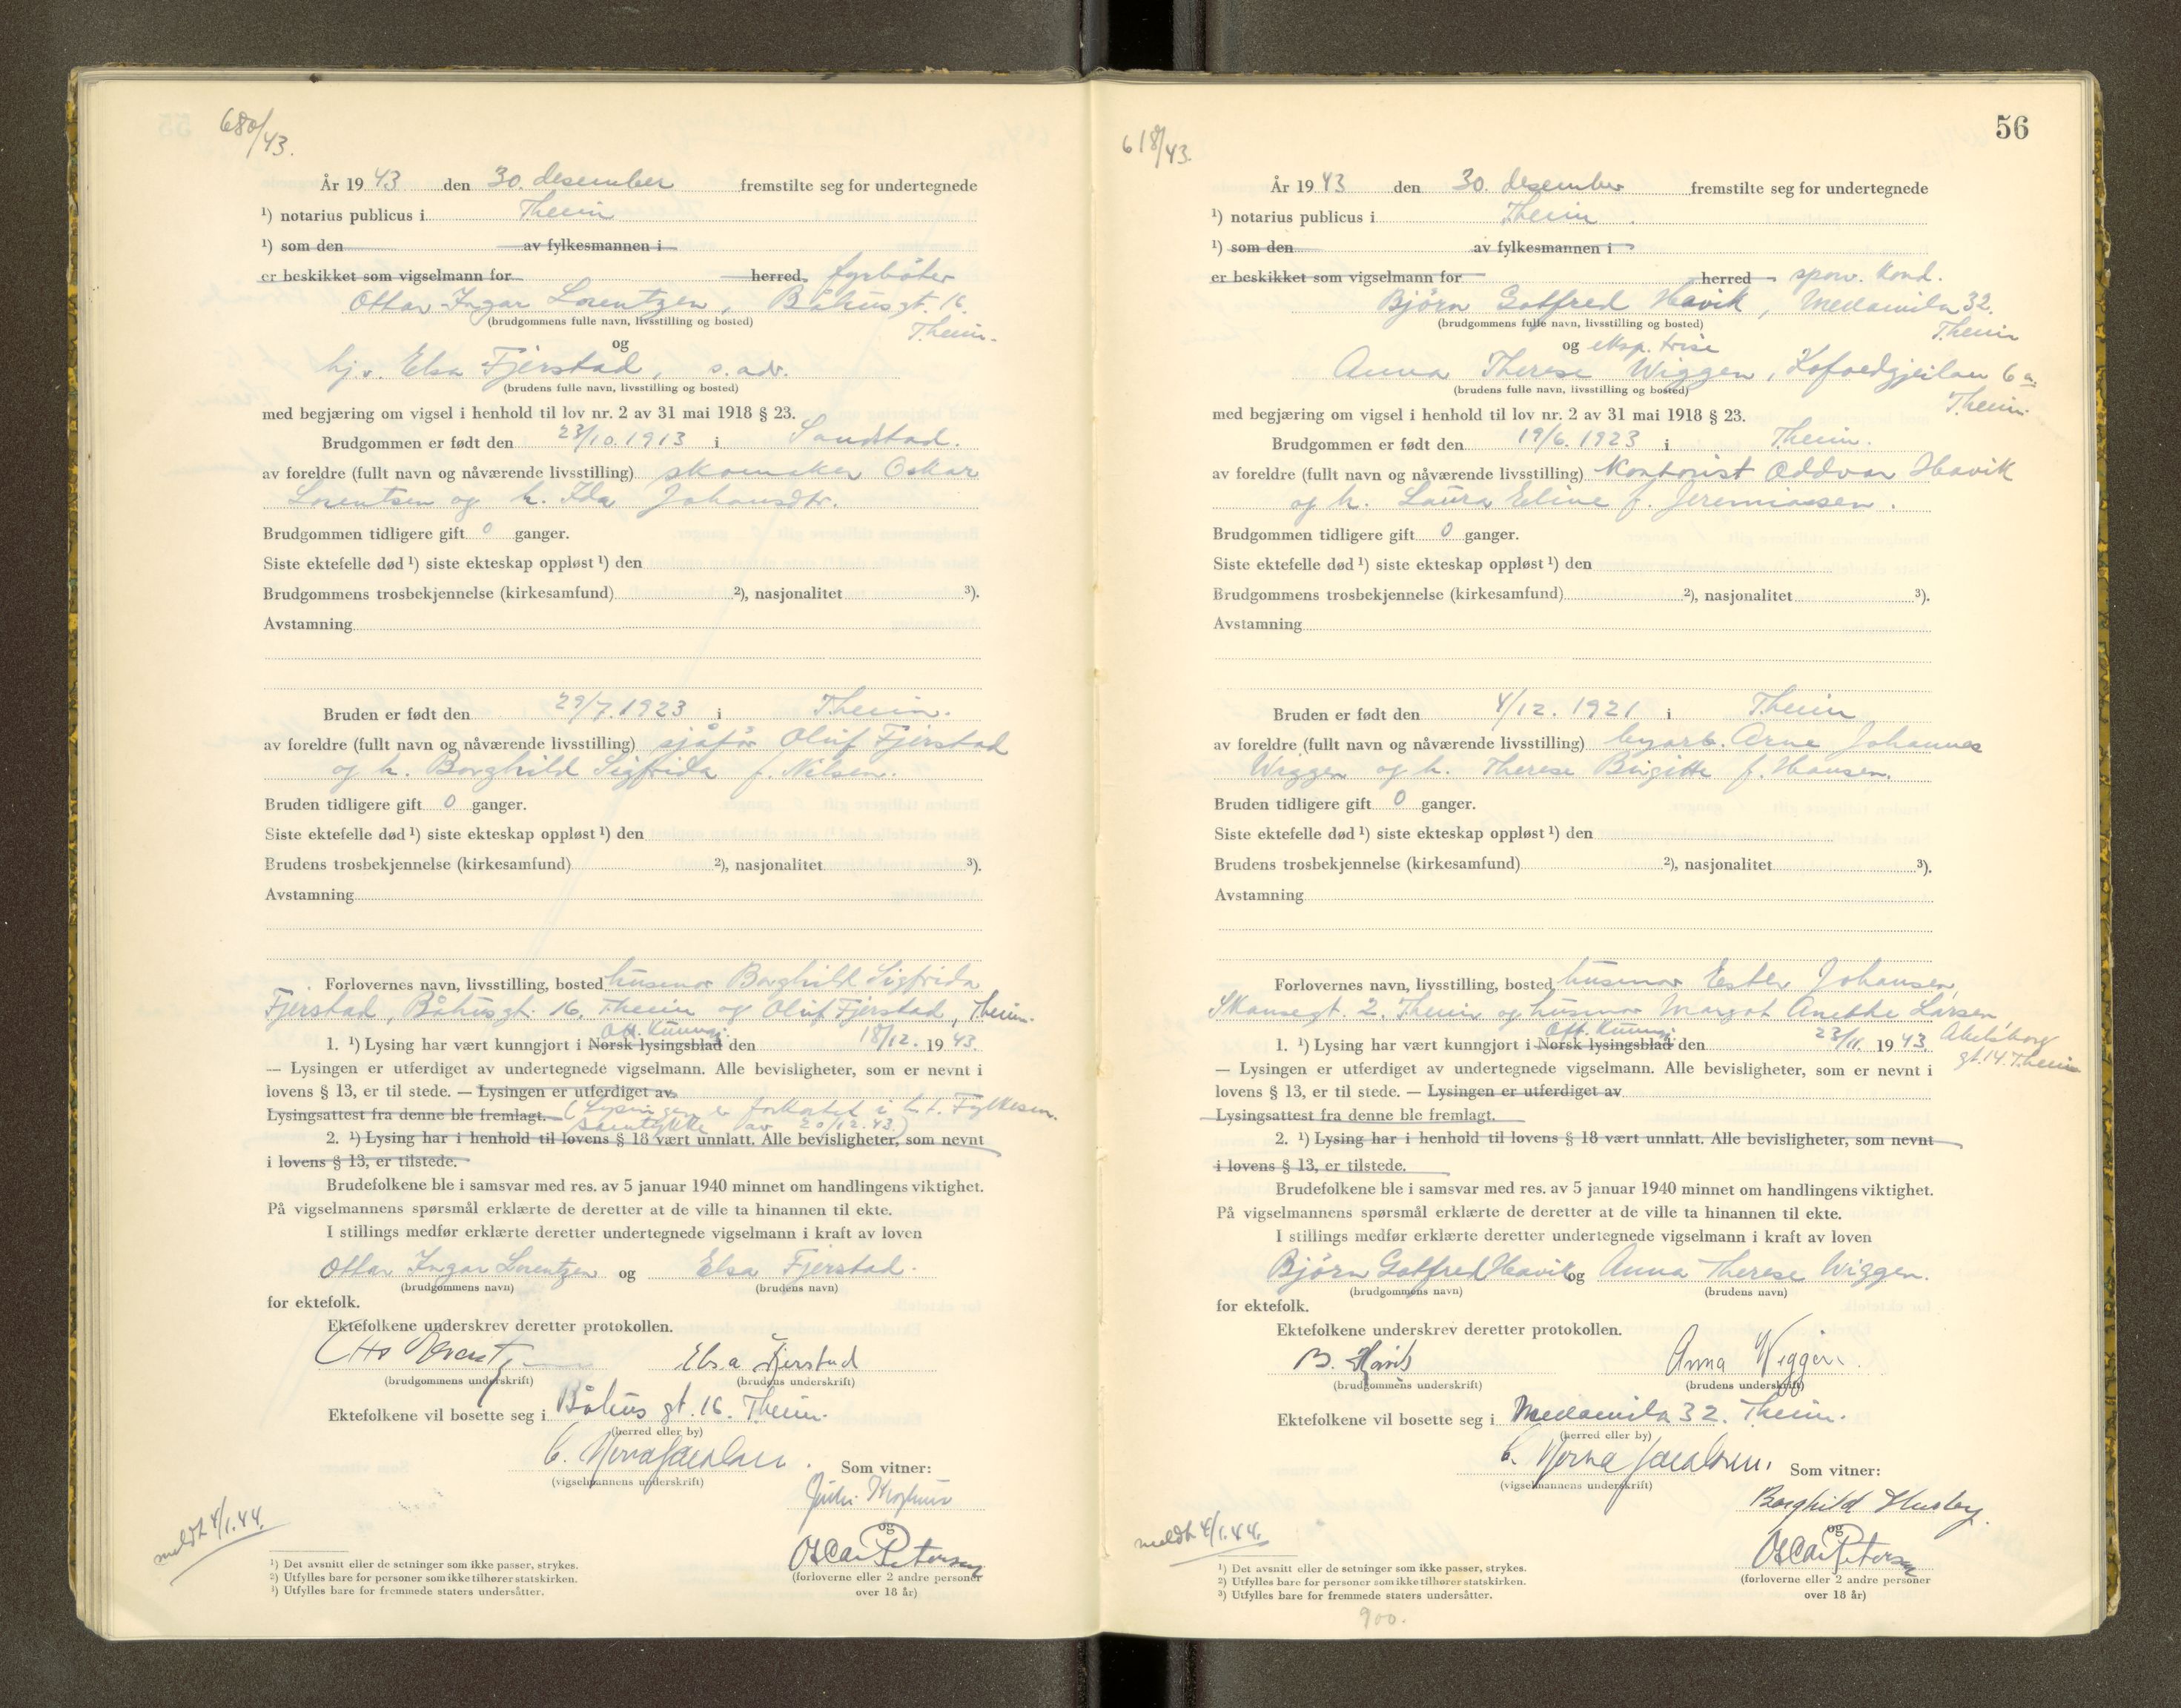 680/43.
År 1943 den 30. desember fremstilte seg for undertegnede
¹) notarius publicus i Theim
¹) som den av fylkesmannen i
er beskikket som vigselmann for herred fyrbøter
Ottar Ingar Lorentzen, Båhusgt. 16.
(brudgommens fulle navn, livsstilling og bosted) Theim.
og
hj.v. Elsa Fjerstad, s. adr.
(brudens fulle navn, livsstilling og bosted)
med begjæring om vigsel i henhold til lov nr. 2 av 31 mai 1918 § 23.
Brudgommen er født den 23/10. 1913 i Sandstad.
av foreldre (fullt navn og nåværende livsstilling) skomaker Oskar
Lorentsen og h. Ida Johansdtr.
Brudgommen tidligere gift 0 ganger.
Siste ektefelle død ¹) siste ekteskap oppløst ¹) den
Brudgommens trosbekjennelse (kirkesamfund) ²), nasjonalitet ³).
Avstamning
Bruden er født den 29/7. 1923 i Theim.
av foreldre (fullt navn og nåværende livsstilling) sjåfør Oluf Fjerstad
og h. Borghild Sigfrida f. Nilsen.
Bruden tidligere gift 0 ganger.
Siste ektefelle død ¹) siste ekteskap oppløst ¹) den
Brudens trosbekjennelse (kirkesamfund) ²), nasjonalitet ³).
Avstamning
Forlovernes navn, livsstilling, bosted husmor Borghild Sigfrida
Fjerstad, Båhusgt. 16, Theim og Oluf Fjerstad, Theim.
Off. Kunngj.
1. ¹) Lysing har vært kunngjort i Norsk lysingsblad den 18/12. 1943.
— Lysingen er utferdiget av undertegnede vigselmann. Alle bevisligheter, som er nevnt i
lovens § 13, er til stede. — Lysingen er utferdiget av
Lysingsattest fra denne ble fremlagt. (Lysingen er forkortet i h.t. Fylkesm.
samtykke av 20/12.43.)
2. ¹) Lysing har i henhold til lovens § 18 vært unnlatt. Alle bevisligheter, som nevnt
i lovens § 13, er tilstede.
Brudefolkene ble i samsvar med res. av 5 januar 1940 minnet om handlingens viktighet.
På vigselmannens spørsmål erklærte de deretter at de ville ta hinannen til ekte.
I stillings medfør erklærte deretter undertegnede vigselmann i kraft av loven
Ottar Ingar Lorentzen og Elsa Fjerstad.
(brudgommens navn) (brudens navn)
for ektefolk.
Ektefolkene underskrev deretter protokollen.
Elsa Fjerstad
(brudgommens underskrift) (brudens underskrift)
Ektefolkene vil bosette seg i Båhus gt. 16. Theim.
(herred eller by)
Som vitner:
(vigselmannens underskrift)
og
Oscar Petersen
(forloverne eller 2 andre personer
over 18 år)
meldt 4/1.44.
¹) Det avsnitt eller de setninger som ikke passer, strykes.
²) Utfylles bare for personer som ikke tilhører statskirken.
¹) Utfylles bare for fremmede staters undersåtter.
56
618/43.
År 1943 den 30. desember fremstilte seg for undertegnede
¹) notarius publicus i Theim.
¹) som den av fylkesmannen i
er beskikket som vigselmann for herred sporv. kond.
Bjørn Gotfred Havik, Mellomila 32.
(brudgommens fulle navn, livsstilling og bosted) Theim
og eksp. trise
Anna Therese Wiggen, Kofoedgjeilan 6 a.
(brudens fulle navn, livsstilling og bosted) Theim.
med begjæring om vigsel i henhold til lov nr. 2 av 31 mai 1918 § 23.
Brudgommen er født den 19/6. 1923 i Theim.
av foreldre (fullt navn og nåværende livsstilling) Kontorist Oddvar Havik
og h. Laura Eline f. Jeremiassen.
Brudgommen tidligere gift 0 ganger.
Siste ektefelle død ¹) siste ekteskap oppløst ¹) den
Brudgommens trosbekjennelse (kirkesamfund) ²), nasjonalitet ³).
Avstamning
Bruden er født den 4/12. 1921 i Theim
av foreldre (fullt navn og nåværende livsstilling) byarb. Arne Johannes
Wiggen og h. Therese Birgitte f. Hansen.
Bruden tidligere gift 0 ganger.
Siste ektefelle død ¹) siste ekteskap oppløst ¹) den
Brudens trosbekjennelse (kirkesamfund) ²), nasjonalitet ³).
Avstamning
Forlovernes navn, livsstilling, bosted husmor Ester Johansen,
Skansegt. 2. Theim og husmor Margot Anette Larsen,
Off. Kunngj.
1. ¹) Lysing har vært kunngjort i Norsk lysingsblad den 23/11. 1943. Akelsborg
gt. 14. Theim
— Lysingen er utferdiget av undertegnede vigselmann. Alle bevisligheter, som er nevnt i
lovens § 13, er til stede. — Lysingen er utferdiget av
Lysingsattest fra denne ble fremlagt.
2. ¹) Lysing har i henhold til lovens § 18 vært unnlatt. Alle bevisligheter, som nevnt
i lovens § 13, er tilstede.
Brudefolkene ble i samsvar med res. av 5 januar 1940 minnet om handlingens viktighet.
På vigselmannens spørsmål erklærte de deretter at de ville ta hinannen til ekte.
I stillings medfør erklærte deretter undertegnede vigselmann i kraft av loven
Bjørn Gotfred Havik og Anna Therese Wiggen.
(brudgommens navn) (brudens navn)
for ektefolk.
Ektefolkene underskrev deretter protokollen.
B. Havik Anna Wiggen.
(brudgommens underskrift) (brudens underskrift)
Ektefolkene vil bosette seg i Mellomila 32. Theim.
(herred eller by)
Som vitner:
(vigselmannens underskrift)
Borghild Husby
og
Oscar Petersen
(forloverne eller 2 andre personer
over 18 år)
meldt 4/1.44.
¹) Det avsnitt eller de setninger som ikke passer, strykes.
²) Utfylles bare for personer som ikke tilhører statskirken.
³) Utfylles bare for fremmede staters undersåtter.
900.